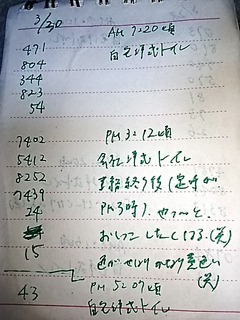 3/30
AM 7:20頃
471 自宅洋式トイレ
804
344
823
54
7402 PM 3:12頃
5412 会社洋式トイレ
8252 業務終了後(定時が
7439 PM3時)、やっと
24 おしっこしたくしてる(笑)
15 色がかなり黄色い
(笑)
43 PM 5:07頃
自宅洋式トイレ